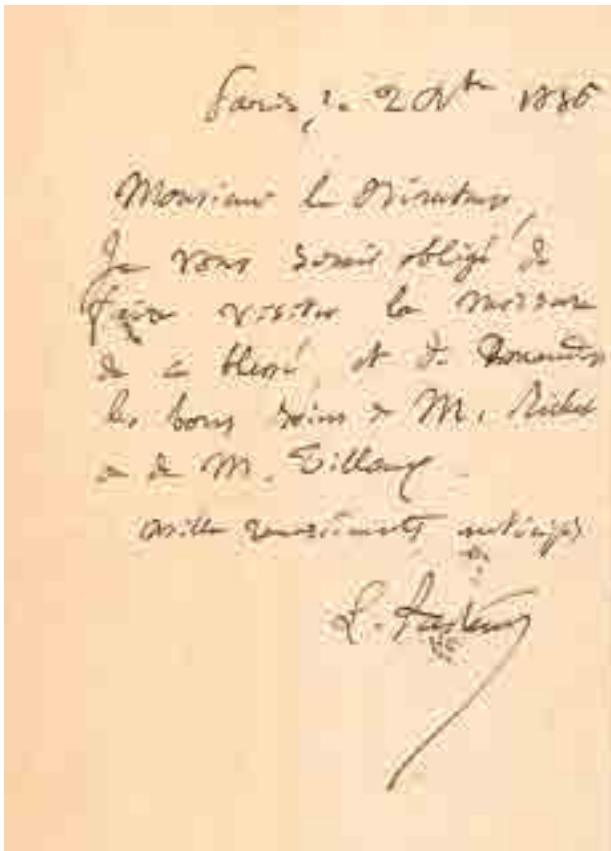 Paris, le 2 8bre 1886
Monsieur le Directeur,
Je vous serais obligé de
faire visiter la morsure
de ce blessé et de demander
les bons soins de M. Richet
ou de M. Tillaux
Mille remerciements anticipés
L. Pasteur